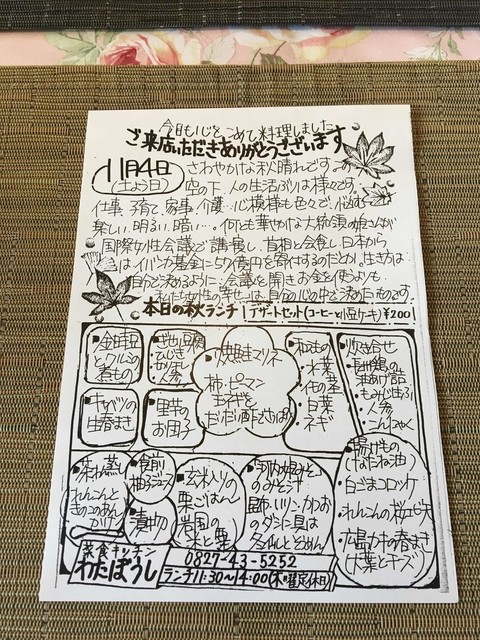 今日も心をこめて料理しました
ご来店いただきありがとうございます
11月4日
(土よう日)
さわやかな秋晴れです。この
空の下、人の生活ぶりは様々です。
仕事、子育て、家事、介護…心模様も色々で、悩む…
楽しい、明るい、暗い…。何とも華やかな大統領の娘さんが
国際女性会議で講報し、首相と会食し、日本から
はイバンカ基金に57億円を寄付するのだとか。生き方は
自分で決めるように…会議を開きお金を使うよりも…
私たち女性の幸せは、自分の心の中で決めたものです。
本日の秋ランチ
デザートセット(コーヒーと小豆ケーキ)¥200
金時豆
とクルミの
煮もの
地山豆腐
ひじき
人参
キャベツの
生春まき
里芋の
お団子
焼鮭マリネ
柿・ピーマン
玉ネギを
だいだい酢でさっぱり
和えもの
水菜
白菜
ネギ
炊き合せ
油あげ詰
もみじ生ふ
人参
こんにゃく
茶わん蒸し
れんこんと
きのこのあん
かけ
食前
柚子ジュース
漬物
玄米入りの
栗ごはん
岩国の
米と栗
のみそ汁
昆布、いりこ、かつお
のダシに具は
冬瓜とそうめん
揚げもの
(なたね油)
白ごまコロッケ
れんこんの桜エビ天
広島カキの春まき
(大葉とチーズ)
菜食キッチン
わたぼうし
0827-43-5252
ランチ11:30~14:00(木曜定休日)